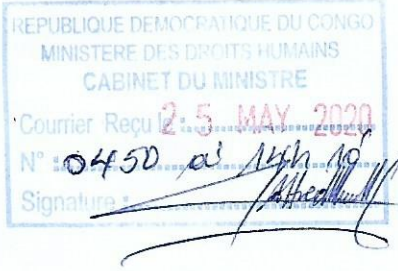 REPUBLIQUE DEMOCRATIQUE DU CONGO
MINISTERE DES DROITS HUMAINS
CABINET DU MINISTRE
Courrier Reçu le : 25 MAY 2020
N° : 0450 à 14h 10'
Signature :